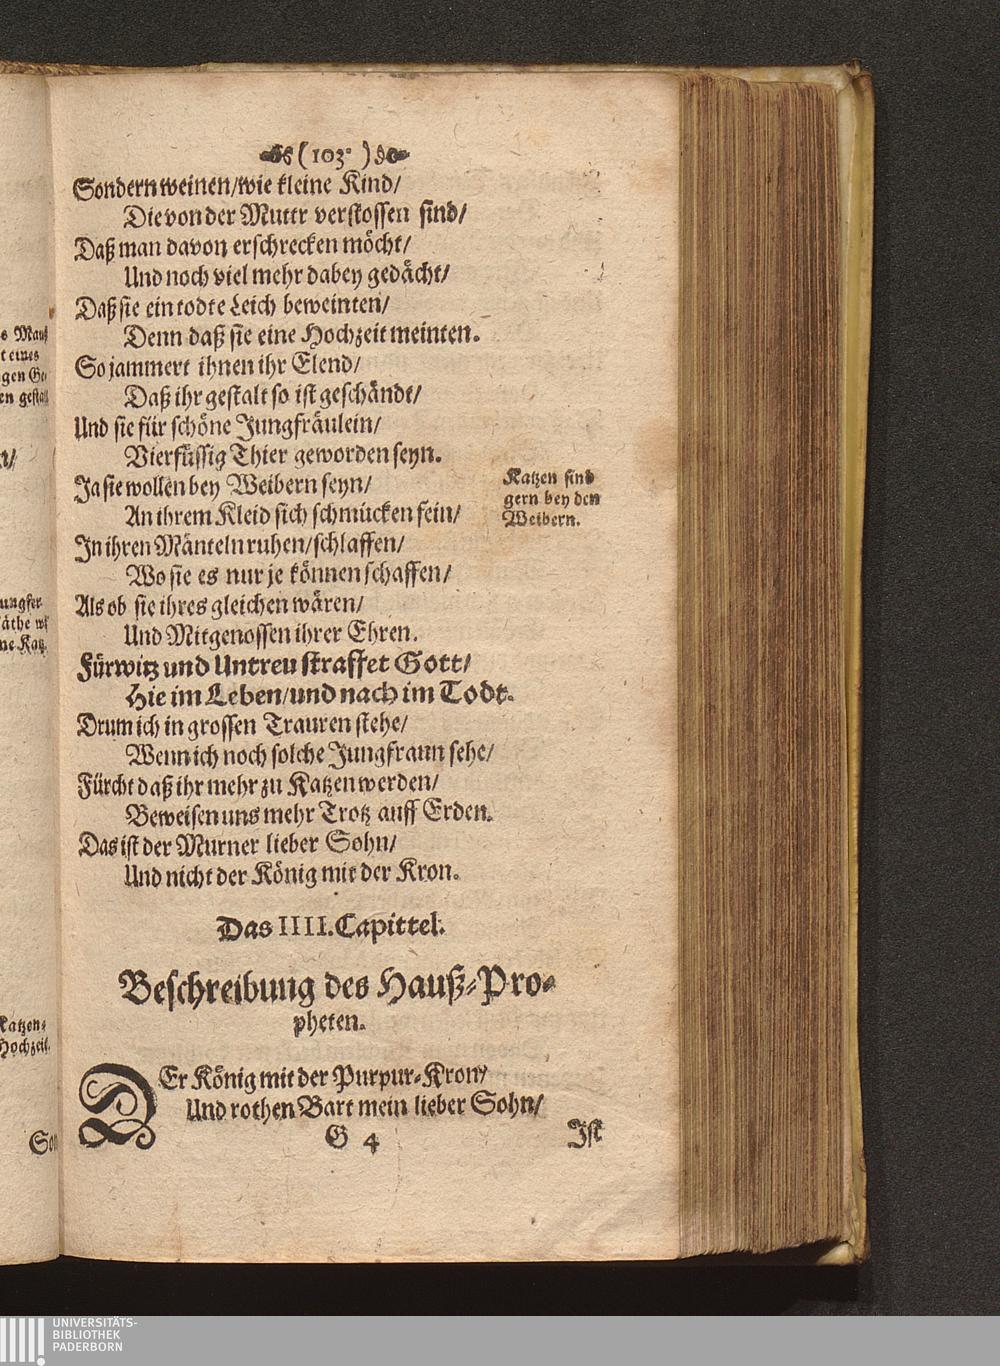 (103.)
Sondern weinen/wie kleine Kind/
Die von der Muttr verstossen sind/
Daß man davon erschrecken möcht/
Und noch viel mehr dabey gedächt/
Daß sie ein todte Leich beweinten/
Denn daß sie eine Hochzeit meinten.
So jammert ihnen ihr Elend/
Daß ihr gestalt so ist geschändt/
Und sie für schöne Jungfräulein/
Vierfüssig Thier geworden seyn.
Ja sie wollen bey Weibern seyn/
An ihrem Kleid sich schmücken fein/
Katzen sind
gern bey den
Weibern.
In ihren Mänteln ruhen/schlaffen/
Wo sie es nur je können schaffen/
Als ob sie ihres gleichen wären/
Und Mitgenossen ihrer Ehren.
Fürwitz und Untreu straffet Gott/
Hie im Leben/und nach im Todt.
Drum ich in grossen Trauren stehe/
Wenn ich noch solche Jungfraun sehe/
Fürcht daß ihr mehr zu Katzen werden/
Beweisen uns mehr Trotz auff Erden.
Das ist der Murner lieber Sohn/
Und nicht der König mit der Kron.
Das IIII. Capittel.
Beschreibung des Hauß-Pro-
pheten.
DEr König mit der Purpur-Kron/
Und rothen Bart mein lieber Sohn/
G 4
Ist
UNIVERSITÄTS-
BIBLIOTHEK
PADERBORN